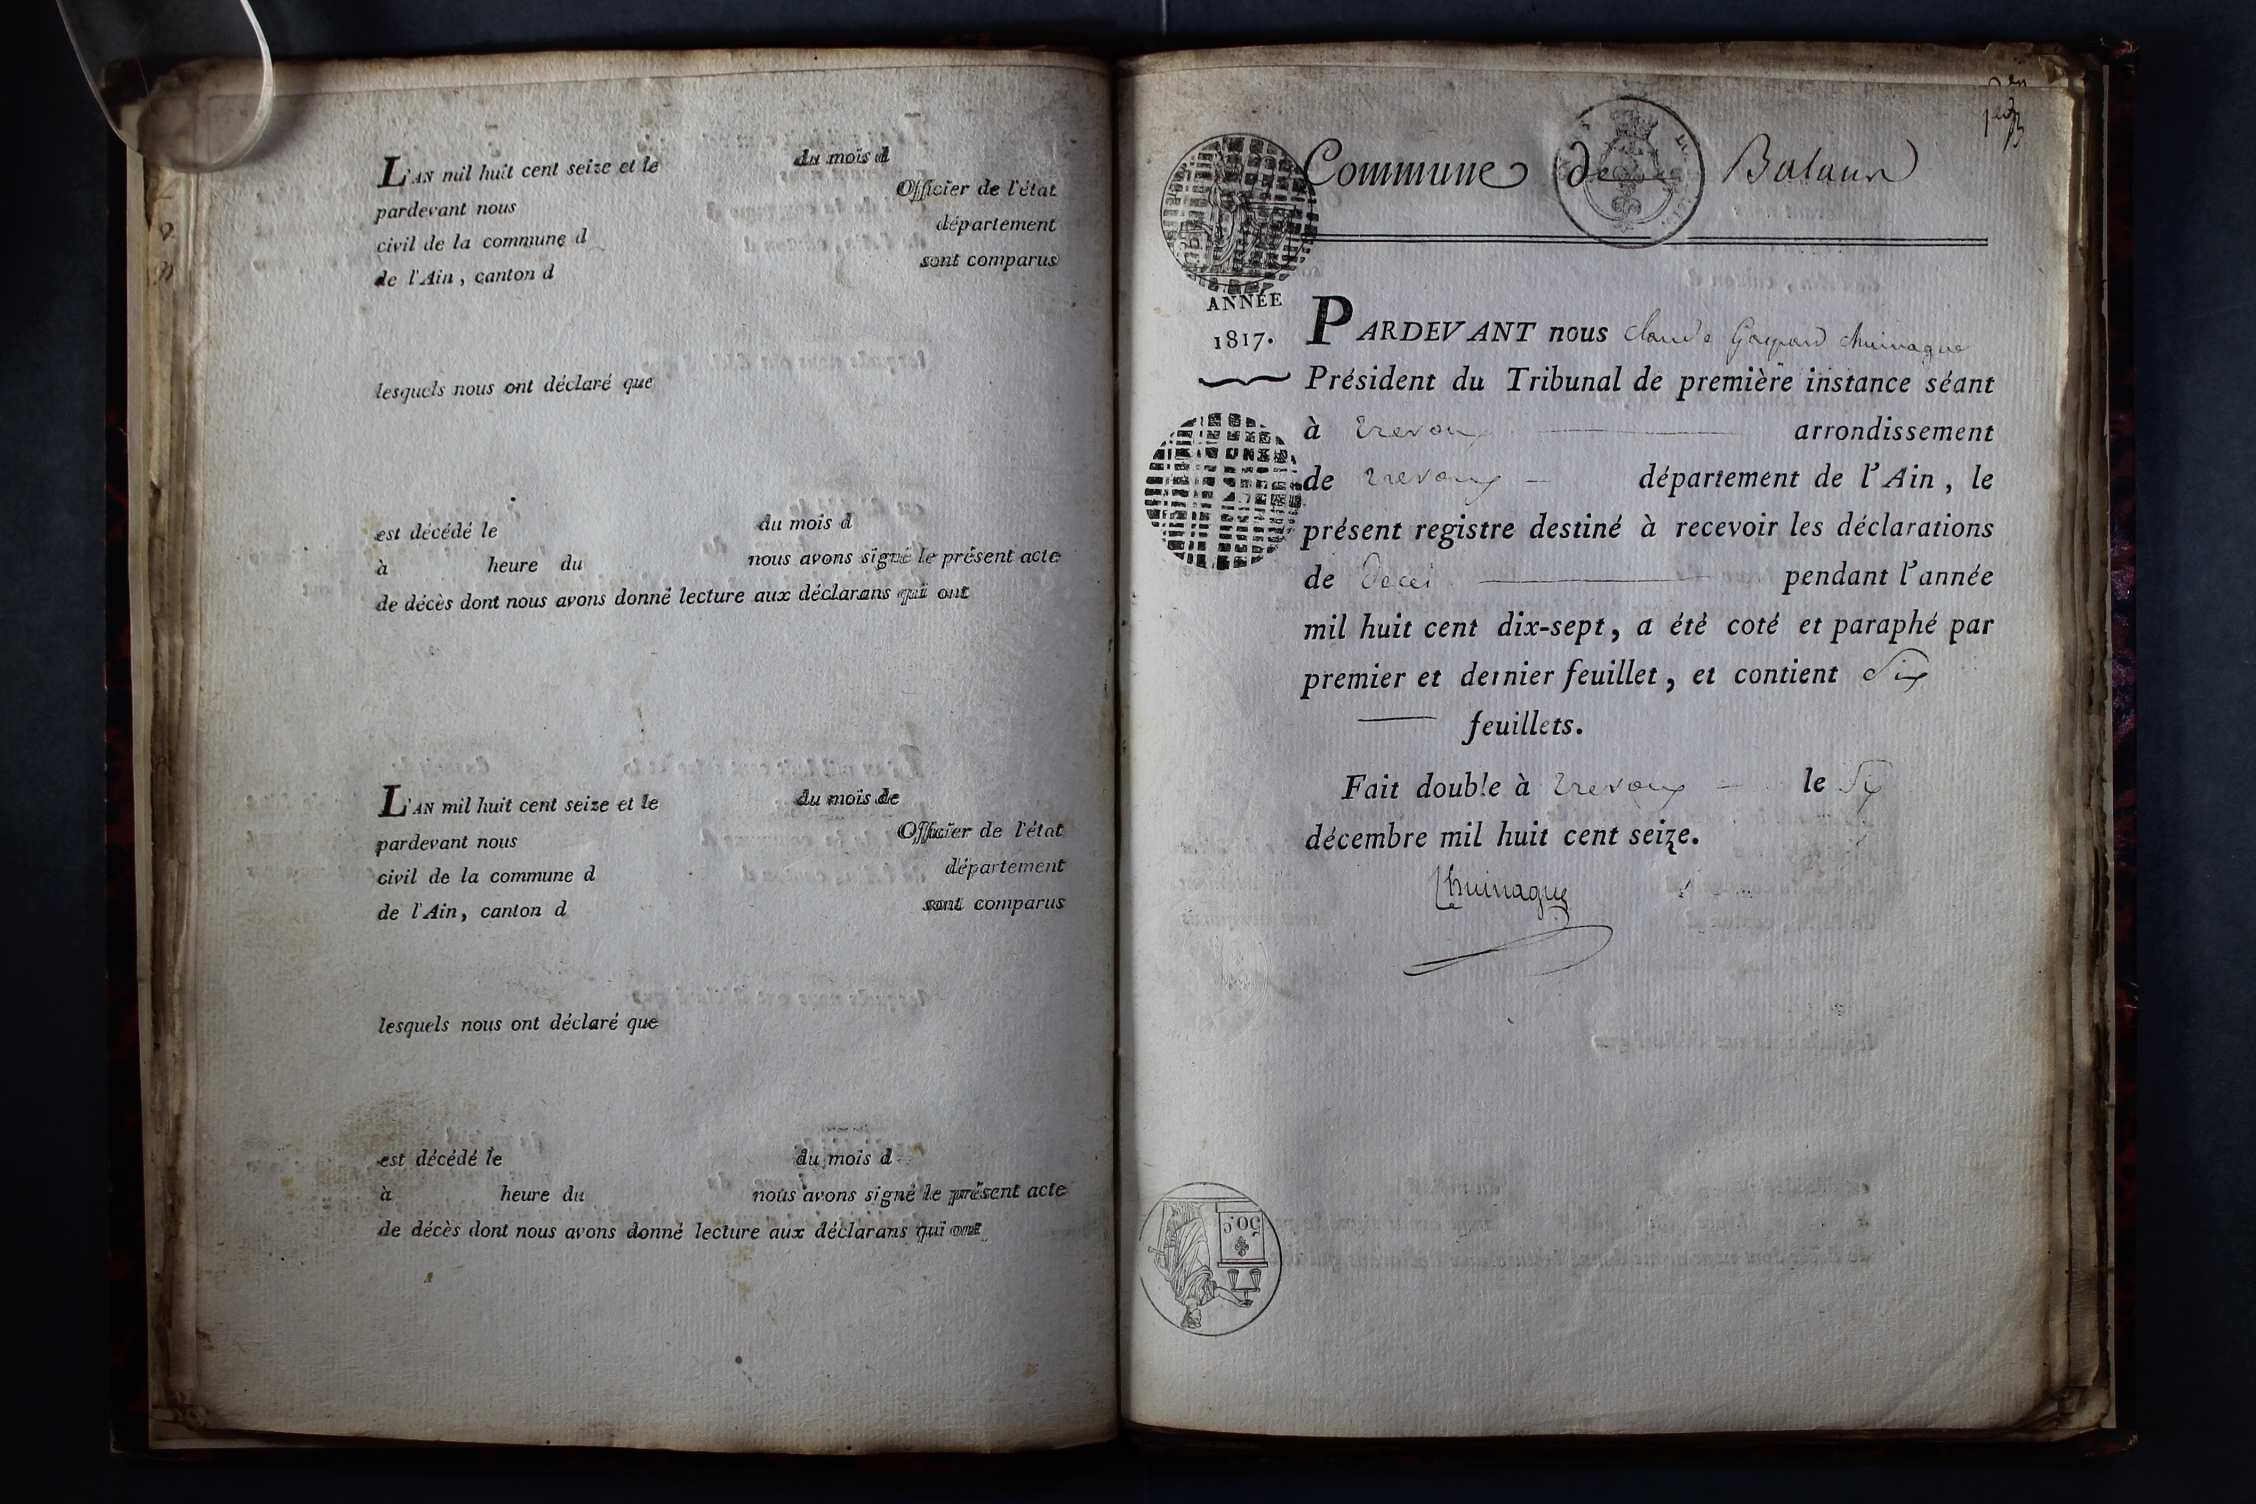 L'AN mil huit cent seize et le du mois d
pardevant nous Officier de l'état
civil de la commune d département
de l'Ain, canton d sont comparus
lesquels nous ont déclaré que
est décédé le du mois d
à heure du nous avons signé le présent acte
de décès dont nous avons donné lecture aux déclarans qui ont
L'AN mil huit cent seize et le du mois de
pardevant nous Officier de l'état
civil de la commune d département
de l'Ain, canton d sont comparus
lesquels nous ont déclaré que
est décédé le du mois d
à heure du nous avons signé le présent acte
de décès dont nous avons donné lecture aux déclarans qui ont
Commune de Balaun
ANNÉE
1817.
PARDEVANT nous Claude Gaspard
Président du Tribunal de première instance séant
à trevoux arrondissement
de trevoux département de l'Ain, le
présent registre destiné à recevoir les déclarations
de Deces pendant l'année
mil huit cent dix-sept, a été coté et paraphé par
premier et dernier feuillet, et contient Six
feuillets.
Fait double à trevoux le Six
décembre mil huit cent seize.
50.c